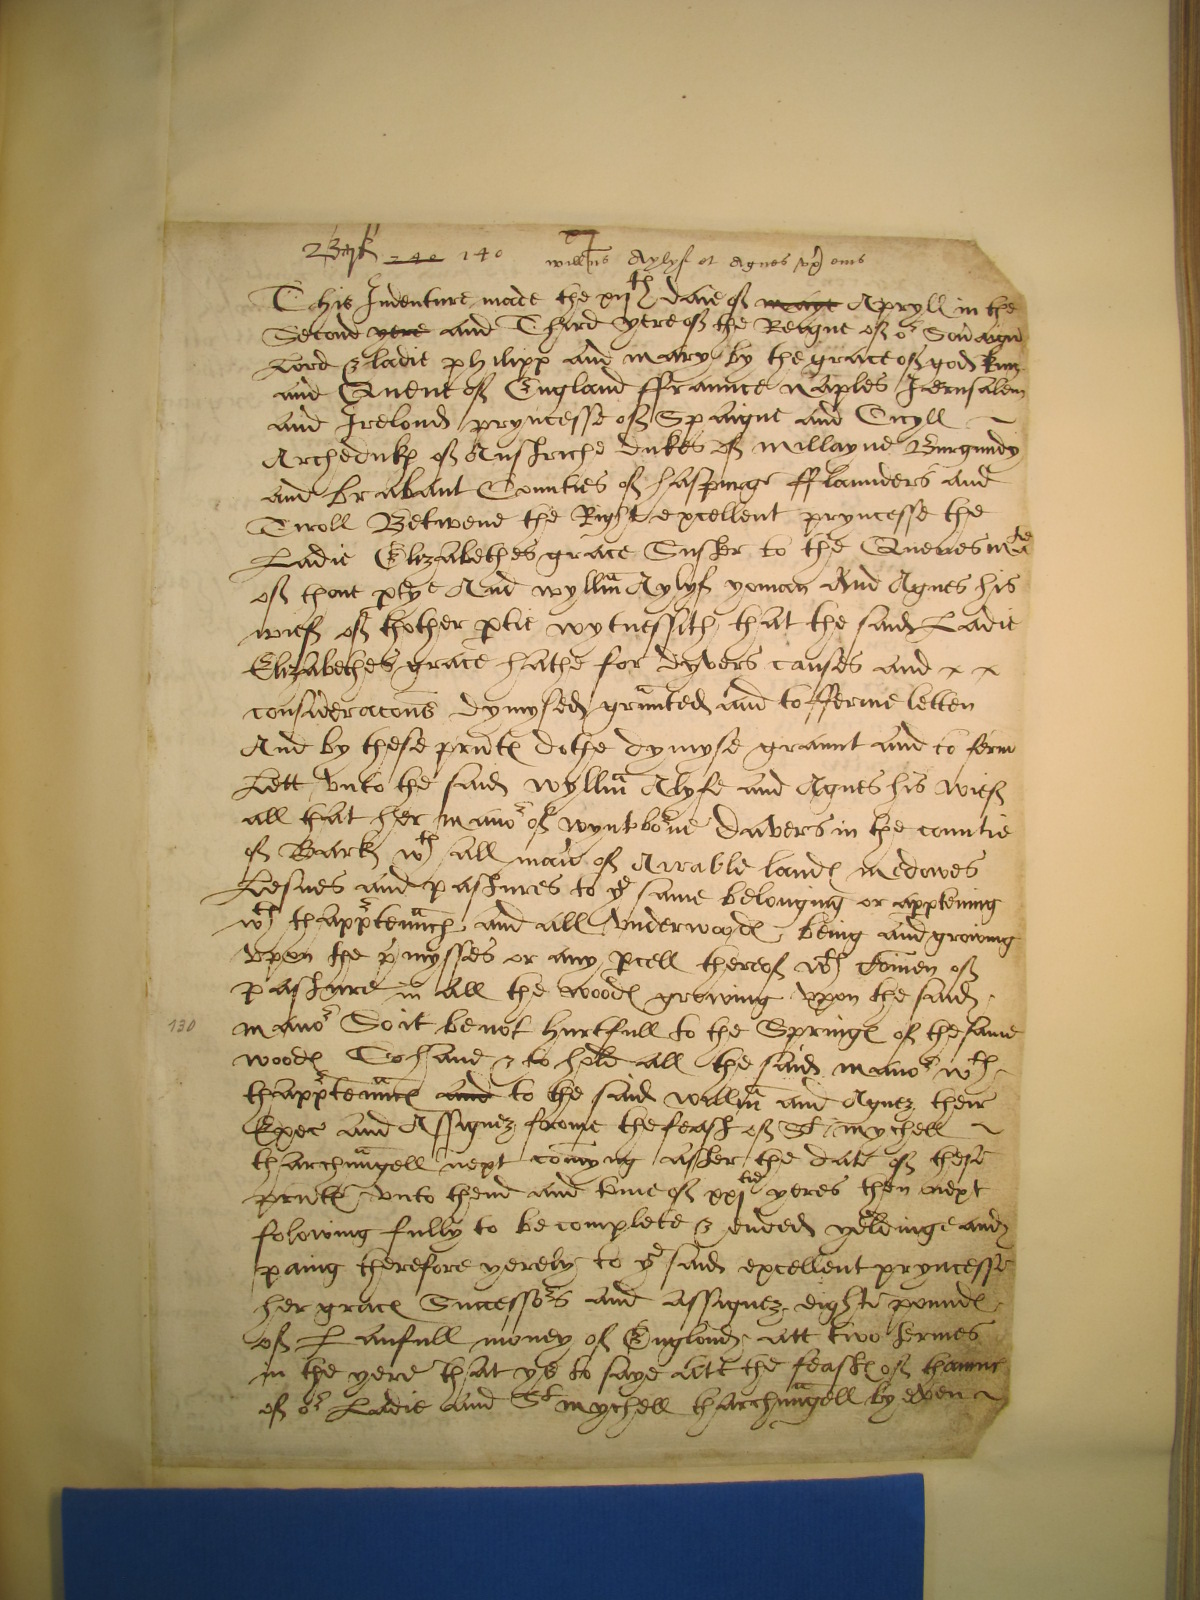 Berk 240 140 willms Aylyf et Agnes uxor eius
This Indenture made the xijth daie of maye Apryll in the
Second yere and Third yere of the Reigne of or Souaign
Lord & ladie philipp and mary by the grace of god king
and Quene of England ffraunce Naples Jerusalem
and Irelond pryncesse of Spaigne and Cicyll
Archeduke of Austriche dukes of Millayne Burgundy
and brabant Counties of haspurge fflaunders and
Tiroll Betwene the Right excellent pryncesse the
Ladie Elizabethes grace Suster to the Quenes matie
of thone ptye And wyllm Aylyf yoman And Agnes his
wief of thother ptie wytnessith that the said Ladie
Elizabethes grace hathe for dyvers causes and x x
consideracons dymysed grunted and to fferme letten
And by these prnte dothe dymyse graunt and to ferm
Lett unto the said wyllm Alyfe and Agnes his wief
all that her manor of wyntborne davers in the countie
of Bark wth all maner of Arrable lande medowes
Lesues and pastures to ye same belonging or apptening
wth thapprtennce and all underwoode being and growing
upon the pmysses or any pcell thereof wth comen of
pasture in all the woode growing uppon the said
130 manor So it be not hurtfull to the Springe of the same
woode To haue & to hold all the said manor wth
thapprtennce and to the said willm and Agnez their
Exec and Assignez frome the feast of St mychell
tharchungell next comyng after the date of these
prnte unto thend and tme of xxjtie yeres then next
folowing fully to be complete & ended yeldinge and
paing therefore yerely to ye said excellent pryncesse
her grace Successors and assignez eighte pounde
of Laufull money of Englond att two termes
in the yere that ys to saye att the feaste of thannc
of or Ladie and St mychell tharchungell by even